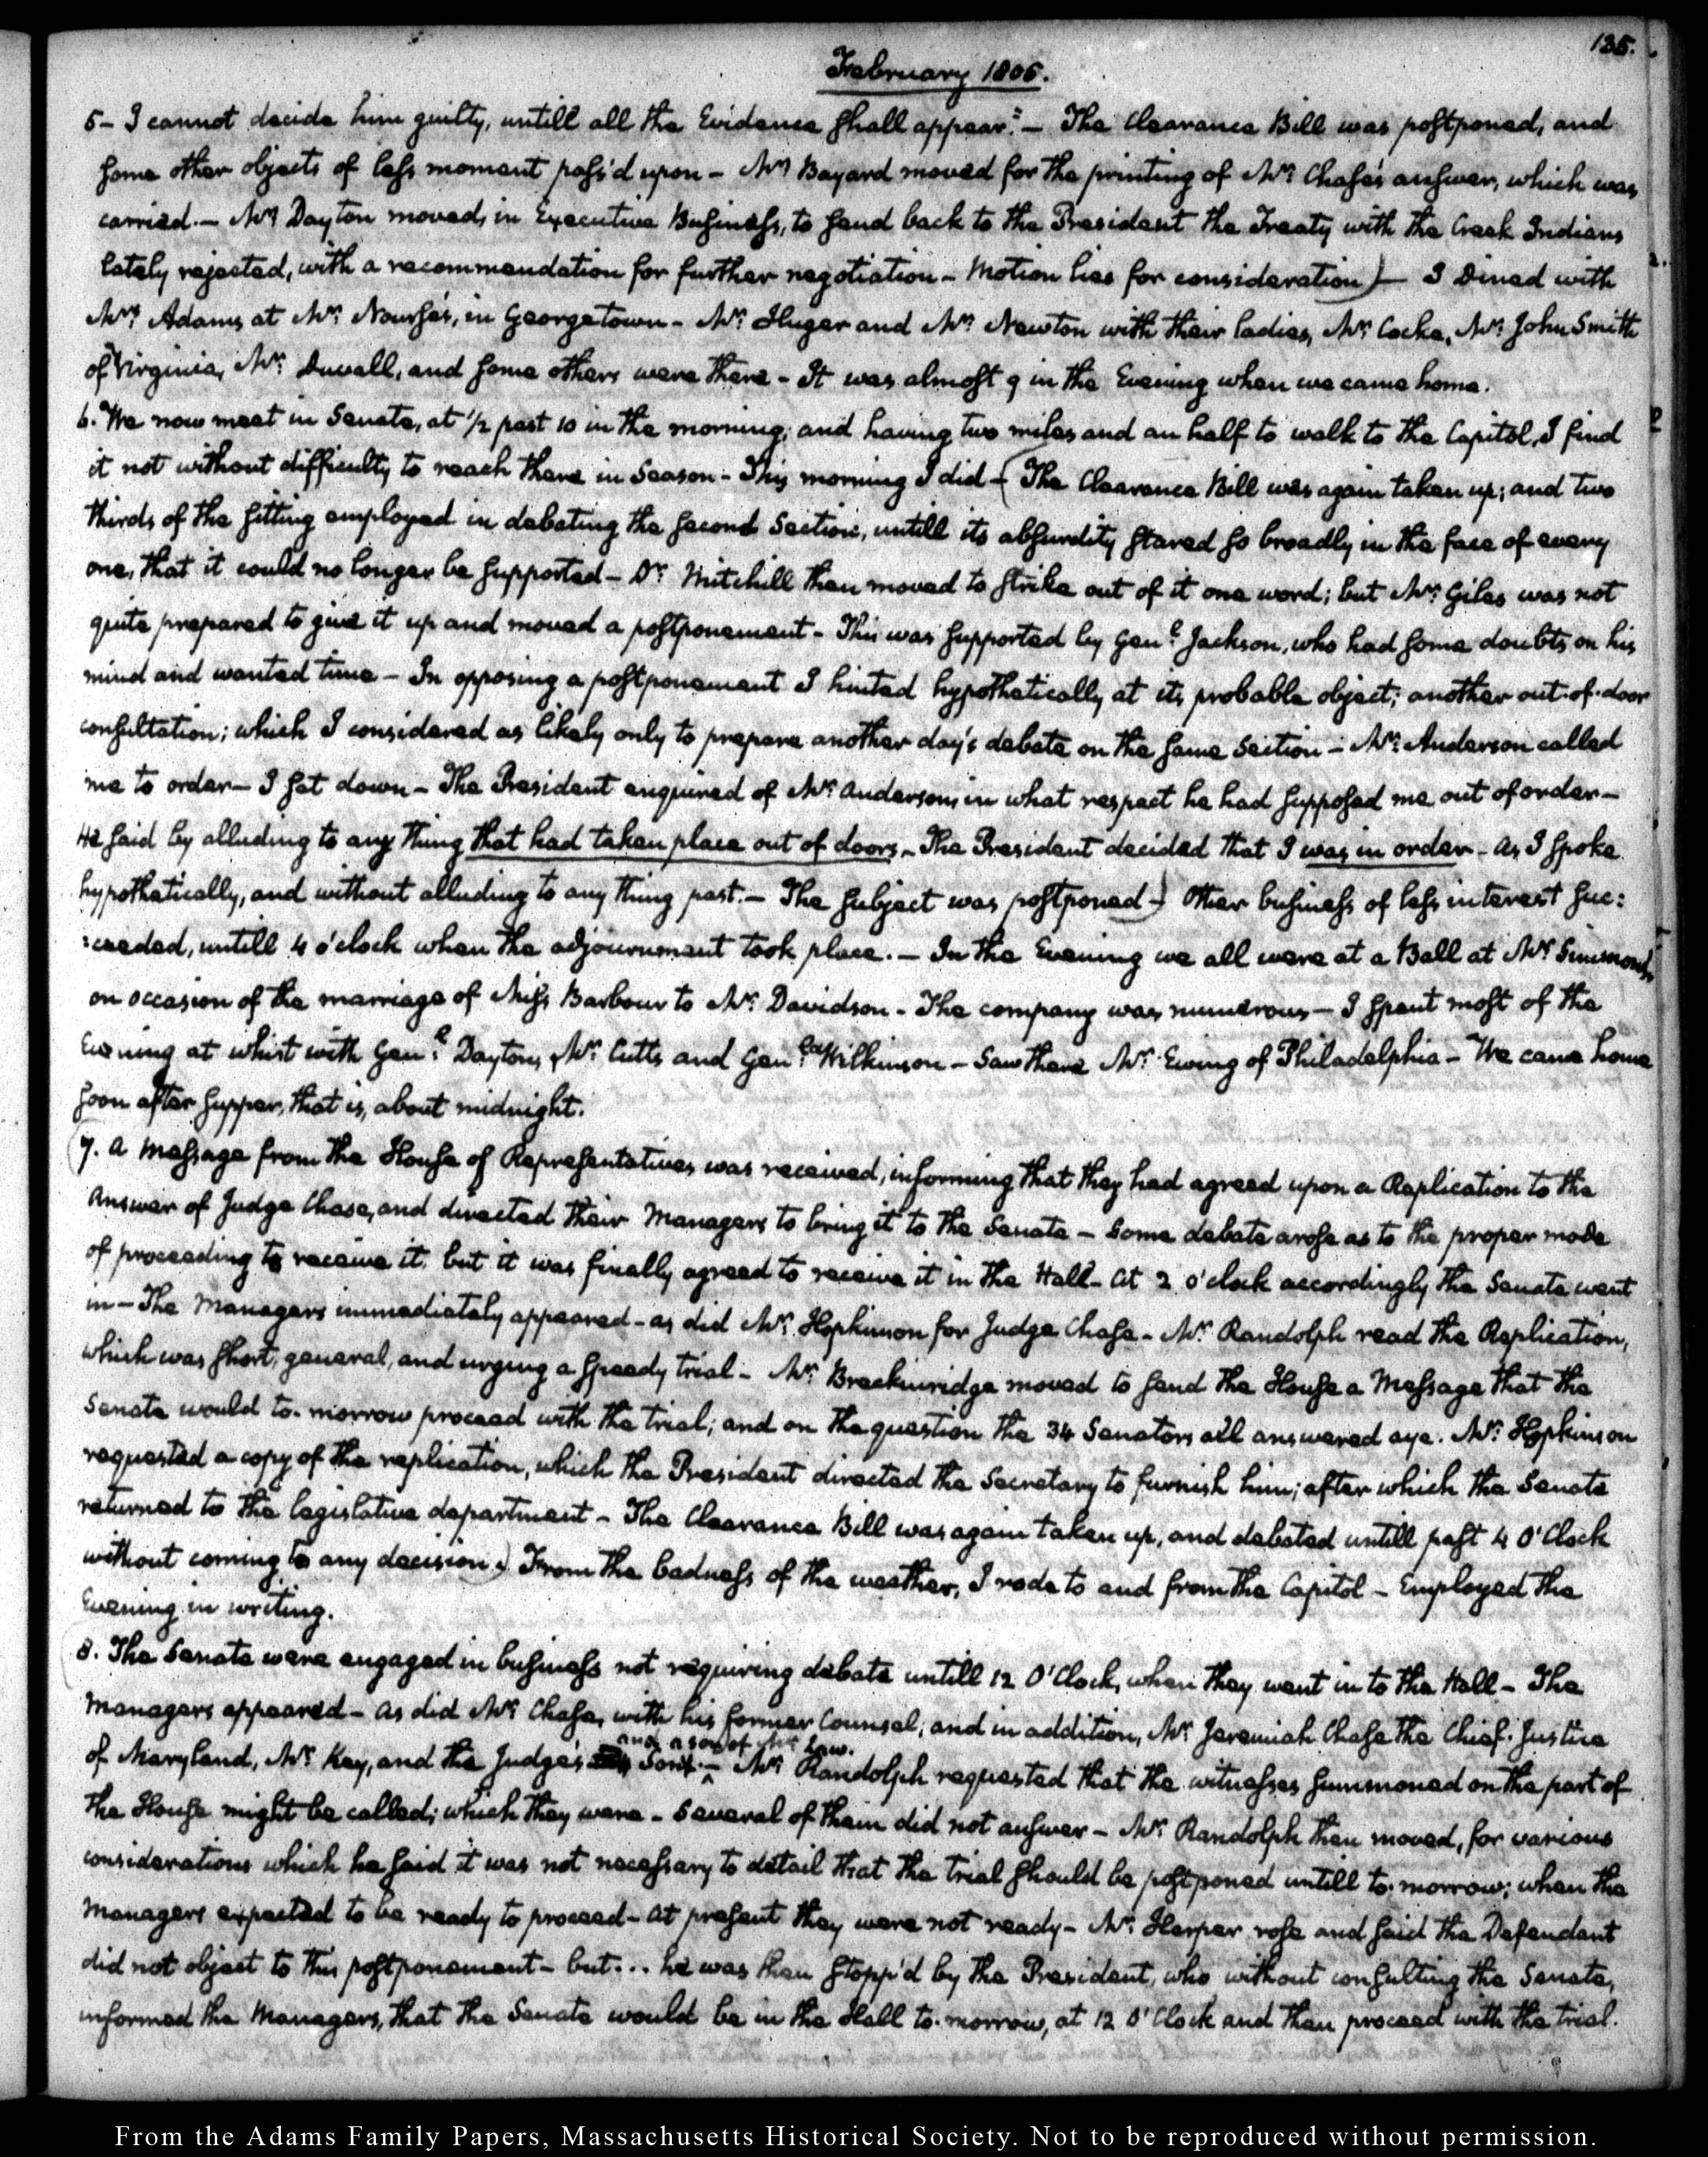 135.
February 1805.
5- I cannot decide him guilty, untill all the Evidence shall appear."- The Clearance Bill was postponed, and
some other objects of less moment pass'd upon - Mr: Bayard moved for the printing of Mr: Chase's answer, which was
carried.- Mr: Dayton moved, in Executive Business, to send back to the President the Treaty with the Creek Indians
lately rejected, with a recommendation for further negotiation - Motion lies for consideration)- I dined with
Mrs: Adams at Mr: Nourse's, in Georgetown - Mr: Huger and Mr: Newton with their ladies, Mr: Cocke, Mr: John Smith
of Virginia, Mr: Duvall, and some others were there - It was almost 9 in the Evening when we came home.
6. We now meet in Senate, at 1/2 past 10 in the morning; and having two miles and an half to walk to the Capitol, I find
it not without difficulty to reach there in Season - This morning I did - (The Clearance Bill was again taken up; and two
thirds of the sitting employed in debating the second Section, untill its absurdity stared so broadly in the face of every
one, that it could no longer be supported - Dr: Mitchill then moved to strike out of it one word; but Mr: Giles was not
quite prepared to give it up and moved a postponement - This was supported by Genl: Jackson, who had some doubts on his
mind and wanted time - In opposing a postponement I hinted hypothetically at its probable object; another out-of-door
consultation; which I considered as likely only to prepare another day's debate on the same Section - Mr: Anderson called
me to order - I sat down - The President enquired of Mr: Anderson, in what respect he had supposed me out of order -
He said by alluding to any thing that had taken place out of doors - The President decided that I was in order - as I spoke
hypothetically, and without alluding to any thing past. - The subject was postponed -) Other business of less interest suc:
:ceeded, untill 4 o'clock when the adjournment took place. - In the Evening we all were at a Ball at Mr: Simmons's,
on occasion of the marriage of Miss Barbour to Mr: Davidson - The company was numerous - I spent most of the
Evening at whist with Genl: Dayton, Mr: Cutts and Genl: Wilkinson - Saw there Mr: Ewing of Philadelphia - We came home
soon after supper, that is, about midnight.
(7. A Message from the House of Representatives was received, informing that they had agreed upon a Replication to the
Answer of Judge Chase, and directed their Managers to bring it to the Senate - Some debate arose as to the proper mode
of proceeding to receive it but it was finally agreed to receive it in the Hall - At 2 o'clock accordingly the Senate went
in - The Managers immediately appeared - as did Mr: Hopkinson for Judge Chase - Mr: Randolph read the Replication,
which was short, general, and urging a speedy trial - Mr: Breckinridge moved to send the House a Message that the
Senate would to-morrow proceed with the trial; and on the question the 34 Senators all answered aye. Mr: Hopkinson
requested a copy of the replication, which the President directed the Secretary to furnish him; after which the Senate
returned to the legislative department - The Clearance Bill was again taken up, and debated untill past 4 O'Clock
without coming to any decision.) From the badness of the weather, I rode to and from the Capitol - Employed the
Evening in writing.
(8. The Senate were engaged in business not requiring debate untill 12 O'Clock, when they went in to the Hall - The
Managers appeared - as did Mr: Chase, with his former Counsel, and in addition, Mr: Jeremiah Chase the Chief-Justice
and a son of Mr: Law.
of Maryland, Mr: Key, and the Judge's Son - Mr: Randolph requested that the witnesses summoned on the part of
the House might be called; which they were - Several of them did not answer - Mr: Randolph then moved, for various
considerations which he said it was not necessary to detail that the trial should be postponed untill to-morrow; when the
Managers expected to be ready to proceed - at present they were not ready - Mr: Harper rose and said the Defendant
did not object to this postponement - but... he was then stopp'd by the President, who without consulting the Senate,
informed the Managers, that the Senate would be in the Hall to-morrow, at 12 O'Clock and then proceed with the trial.
From the Adams Family Papers, Massachusetts Historical Society. Not to be reproduced without permission.